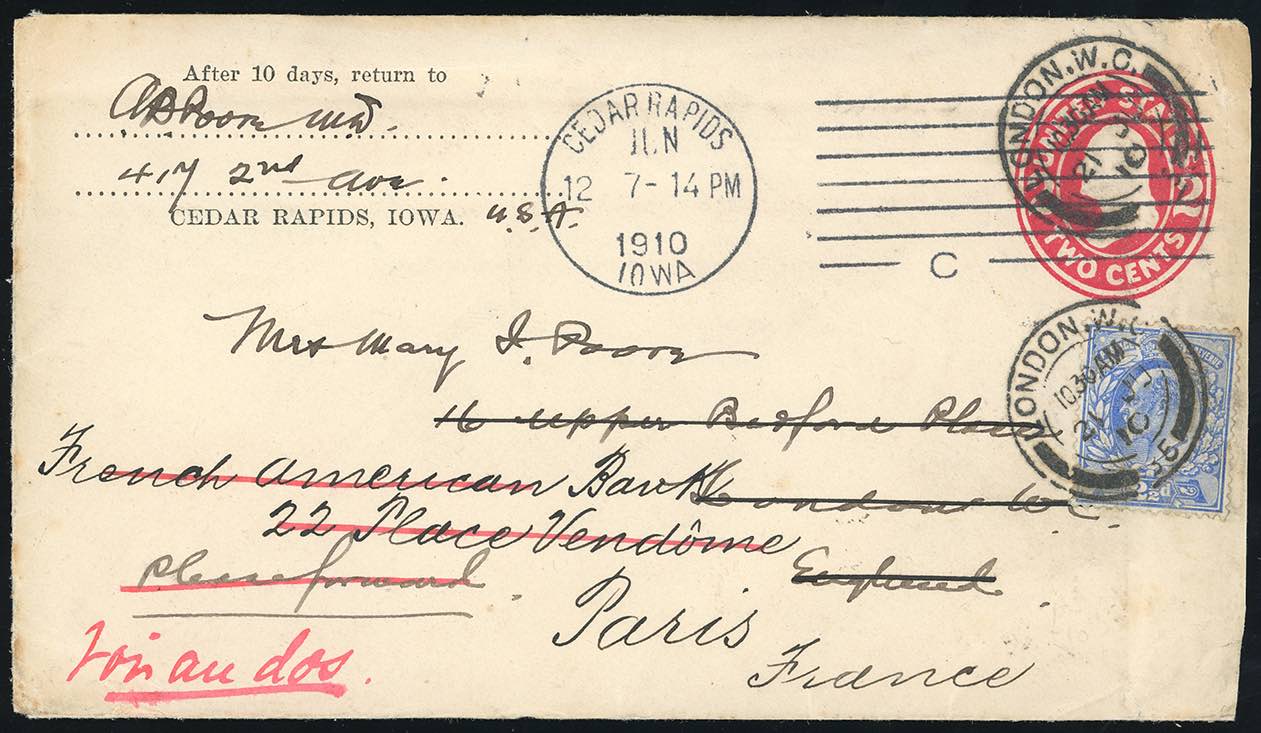 After 10 days, return to
417 2nd Ave.
CEDAR RAPIDS, IOWA. U.S.A.
CEDAR RAPIDS
JUN
12 7-14 PM
1910
IOWA
C
UNITED STATES
TWO CENTS
LONDON.W.C.
10.30AM
21
10
Mrs Mary I. Poore
16 upper Bedford Place
London W.C.
England
LONDON.W.C.
10.30AM
21 JU
10
35
2½d
French American Bank
22 Place Vendôme
Please forward.
Paris
France
Voir au dos.